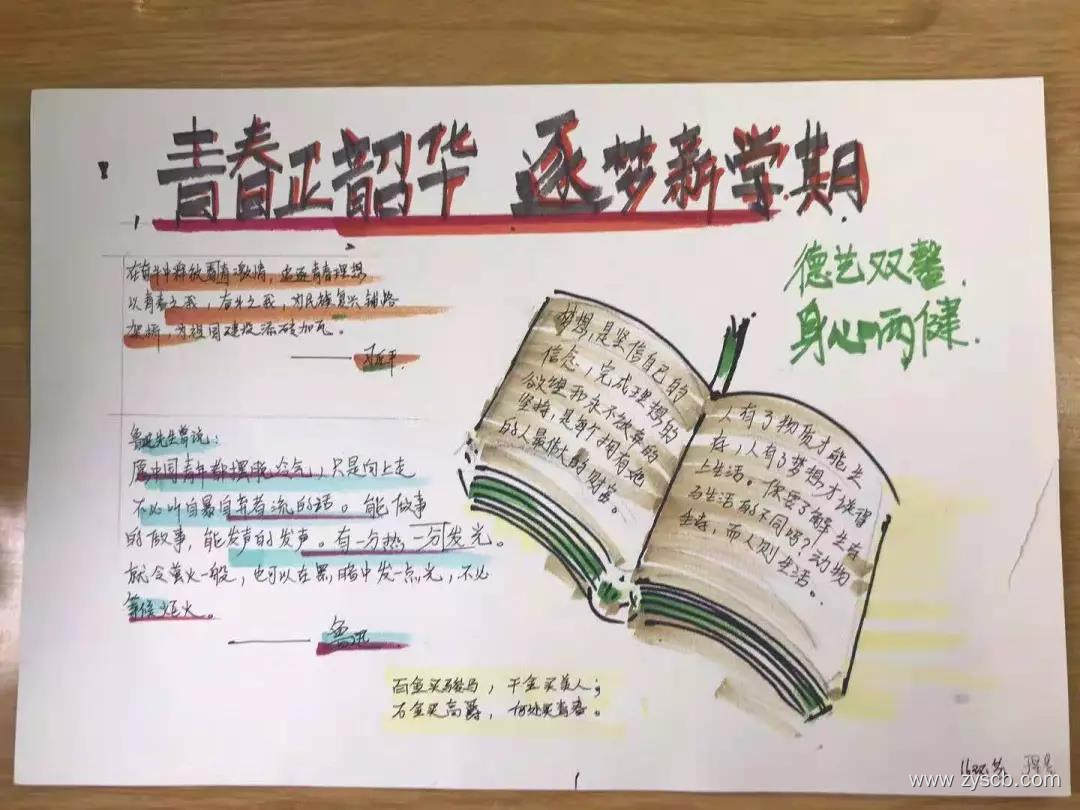 青春正韶华 逐梦新学期
德艺双馨
身心两健.
在奋斗中释放青春激情,追逐青春理想
以青春之我,奋斗之我,为民族复兴铺路
架桥,为祖国建设添砖加瓦。
——习近平.
鲁迅先生曾说:
愿中国青年都摆脱冷气,只是向上走
不必听自暴自弃者流的话。能做事
的做事,能发声的发声。有一分热一分发光。
就令萤火一般,也可以在黑暗中发一点光,不必
等候炬火。
——鲁迅
梦想,是坚信自己的
信念,完成理想的
欲望和永不放弃的
坚持,是每个拥有她
的人最伟大的财富。
人有了物质才能生
存,人有了梦想才谈得
上生活。你要了解生存
与生活的不同吗?动物
生存,而人则生活。
百金买骏马,千金买美人;
万金买高爵,何处买青春。
www.zyscb.com